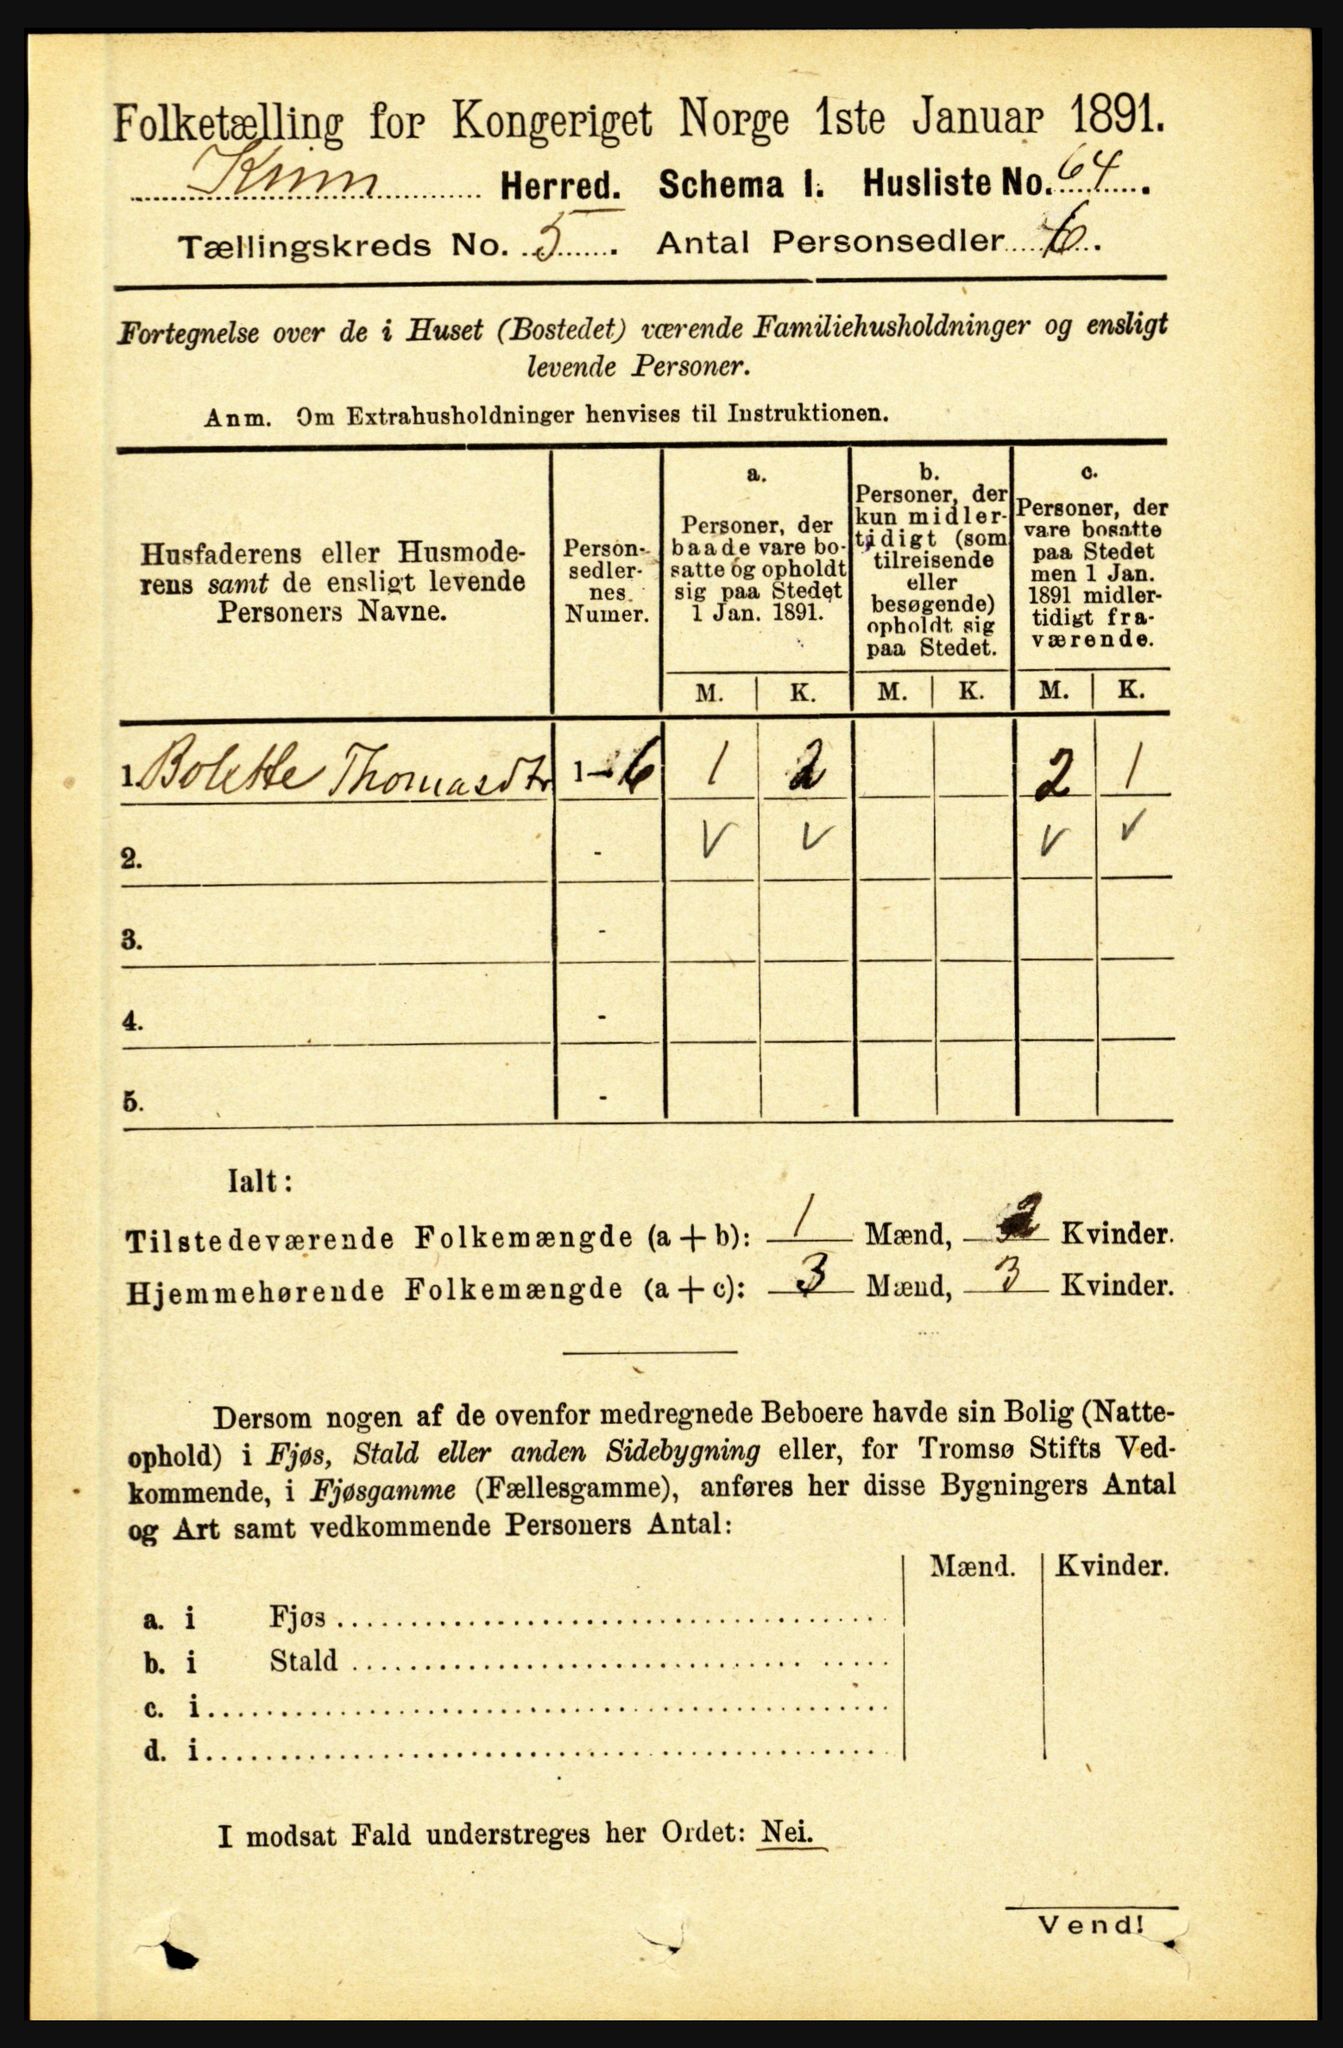 Folketælling for Kongeriget Norge 1ste Januar 1891.
Kinn Herred. Schema I. Husliste No. 64.
Tællingskreds No. 5. Antal Personsedler 6.
Fortegnelse over de i Huset (Bostedet) værende Familiehusholdninger og ensligt
levende Personer.
Anm. Om Extrahusholdninger henvises til Instruktionen.
Husfaderens eller Husmode-
rens samt de ensligt levende
Personers Navne.
Person-
sedler-
nes
Numer.
a.
Personer, der
baade vare bo-
satte og opholdt
sig paa Stedet
1 Jan. 1891.
b.
Personer, der
kun midler-
tidigt (som
tilreisende
eller
besøgende)
opholdt sig
paa Stedet.
c.
Personer, der
vare bosatte
paa Stedet
men 1 Jan.
1891 midler-
tidigt fra-
værende.
M. K. M. K. M. K.
1. Bolette Thomasdtr 1-6 1 2 2 1
2. - V V V V
3. -
4. -
5. -
Ialt:
Tilstedeværende Folkemængde (a + b): 1 Mænd, 2 Kvinder.
Hjemmehørende Folkemængde (a + c): 3 Mænd, 3 Kvinder.
Dersom nogen af de ovenfor medregnede Beboere havde sin Bolig (Natte-
ophold) i Fjøs, Stald eller anden Sidebygning eller, for Tromsø Stifts Ved-
kommende, i Fjøsgamme (Fællesgamme), anføres her disse Bygningers Antal
og Art samt vedkommende Personers Antal:
Mænd. Kvinder.
a. i Fjøs
b. i Stald
c. i
d. i
I modsat Fald understreges her Ordet: Nei.
Vend!